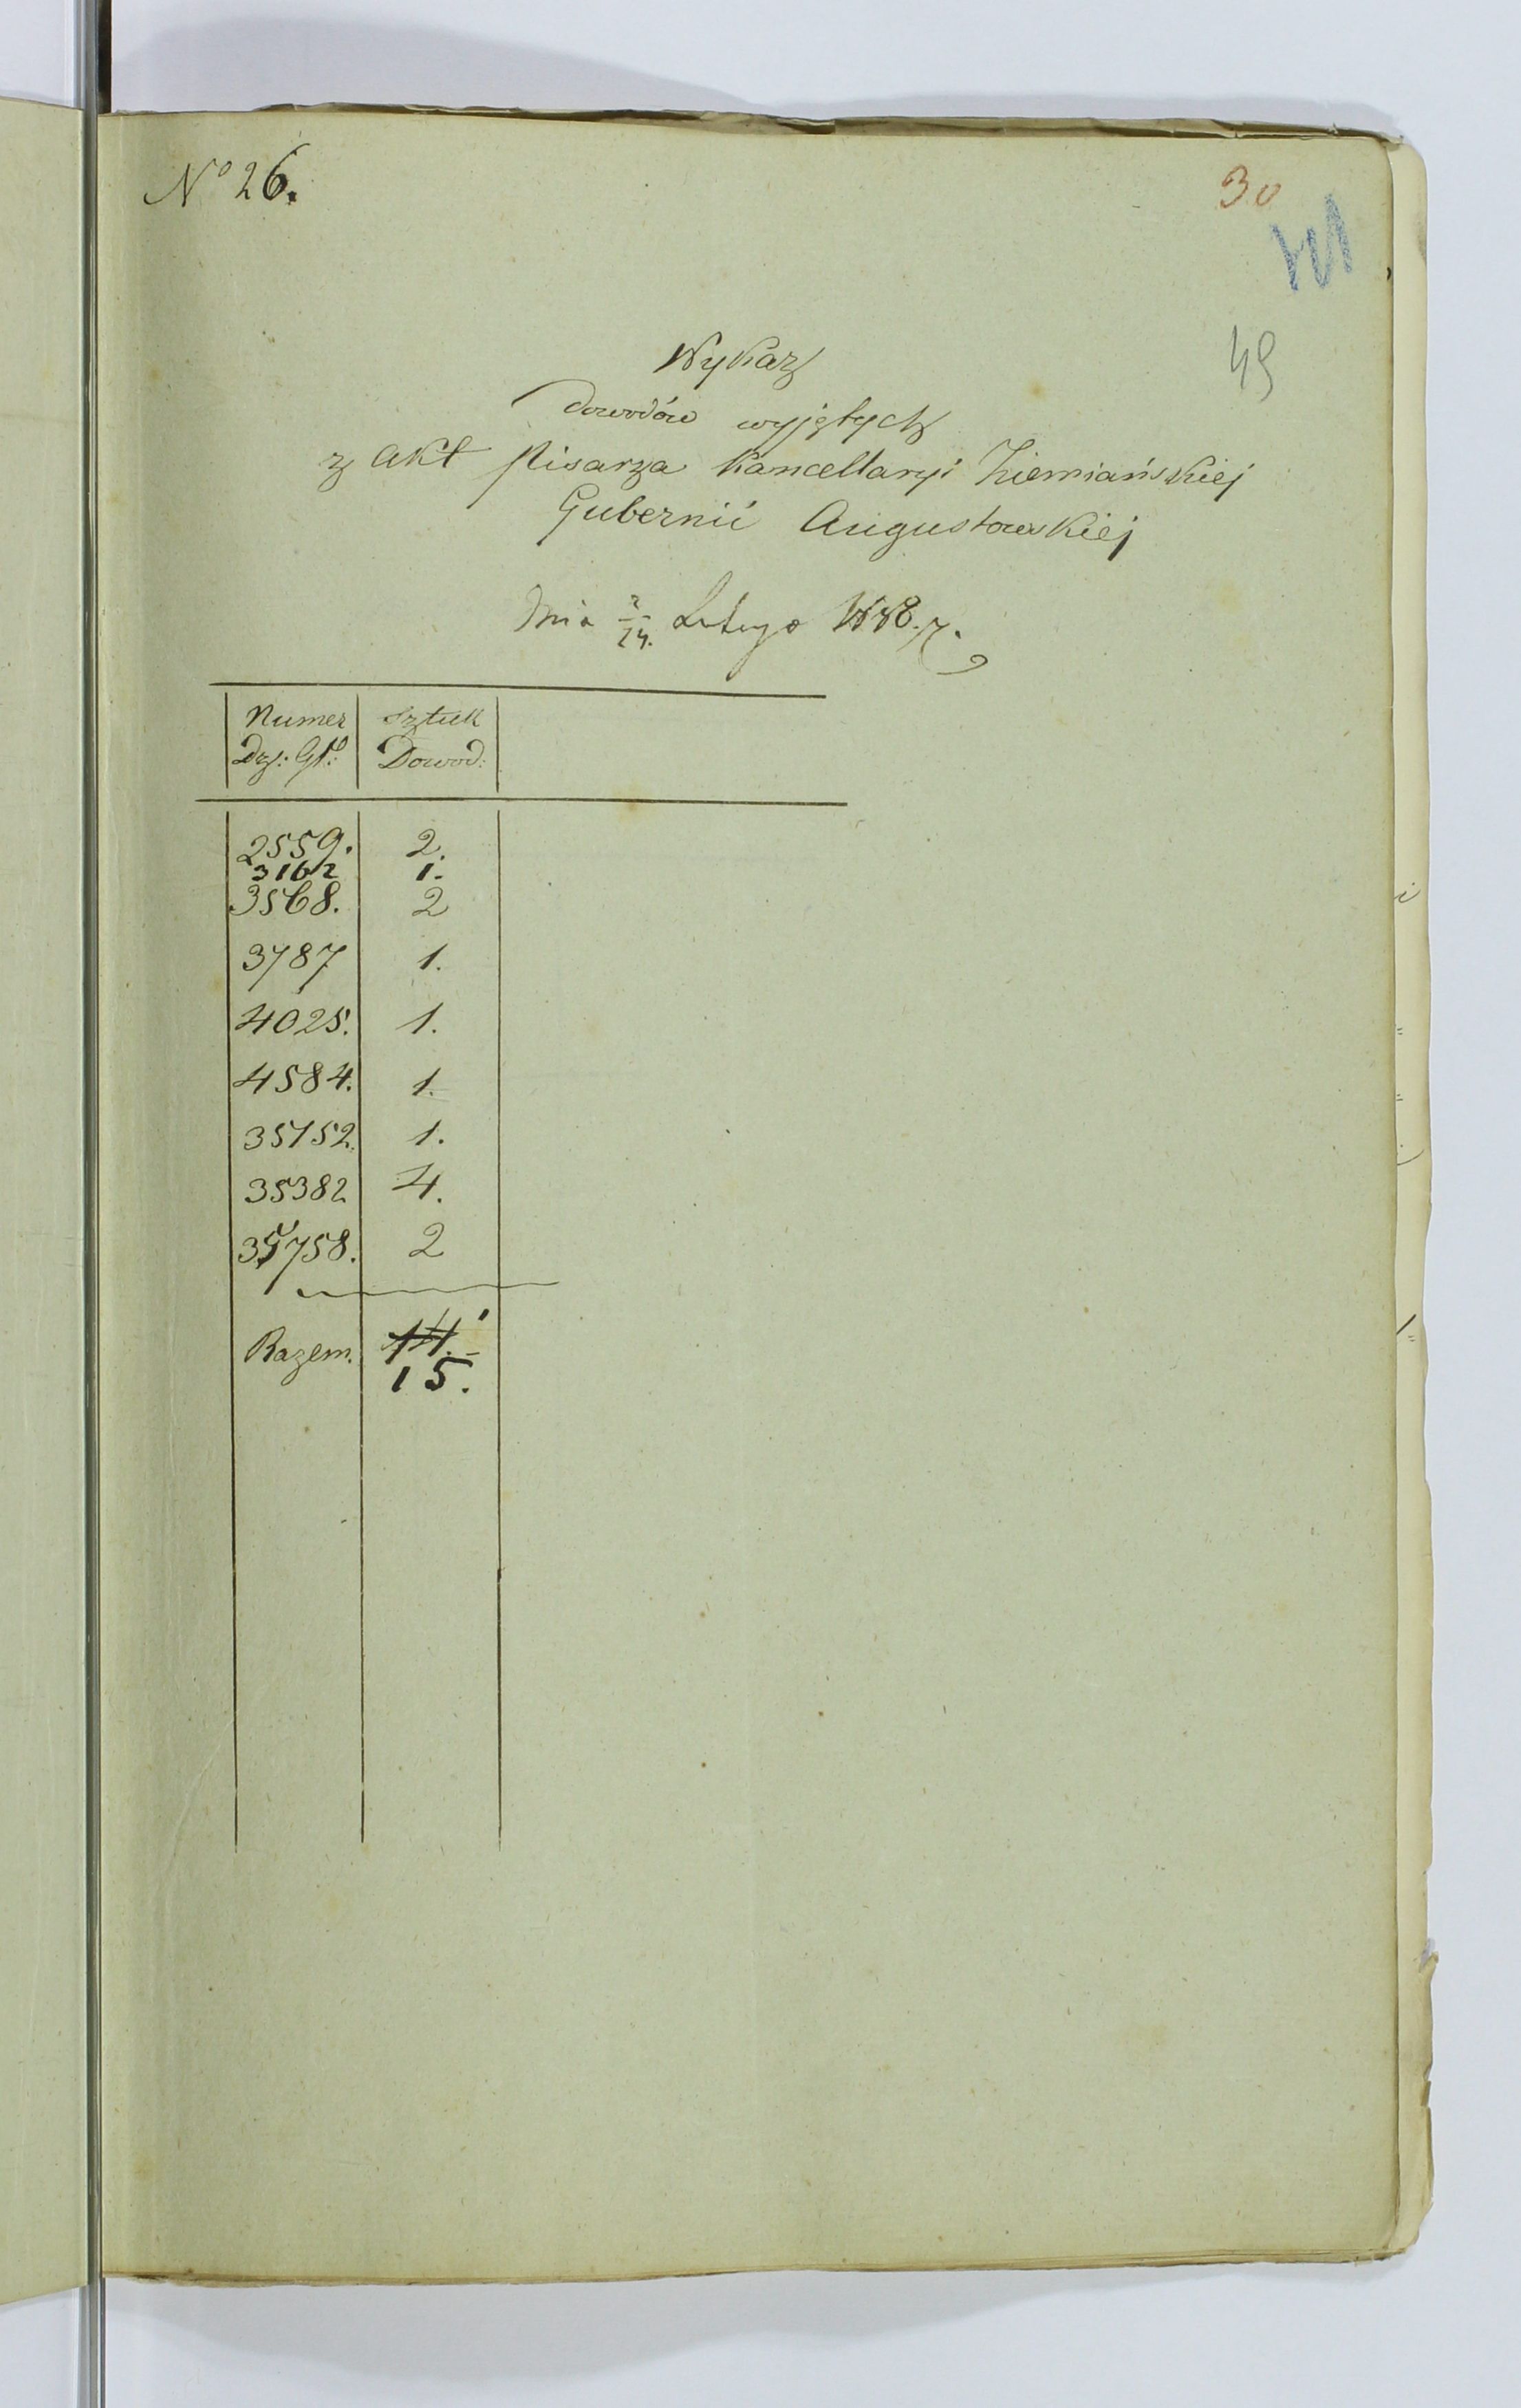 Nº 26.
30
49
Wykaz
dowodów wyjętych
z akt Pisarza Kancellaryi Ziemiańskiej
Gubernii Augustowskiej
Dnia 2/14. Lutego 1848. r.
Numer Sztuk
Dz: Gł: Dowod:
2559. 2.
3162 1.
3568. 2
3787 1.
4025. 1.
4584. 1.
35152. 1.
35382 4.
35758. 2
Razem. 14.
15.